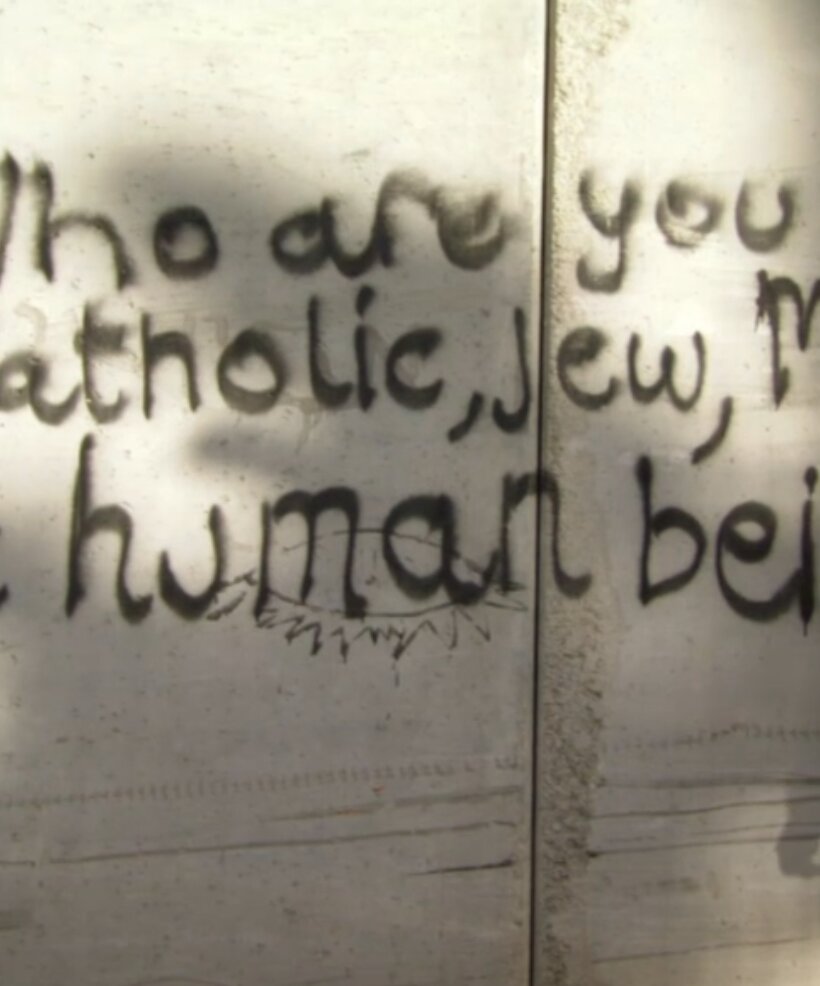 Who are you
atholic, Jew, M
human bei